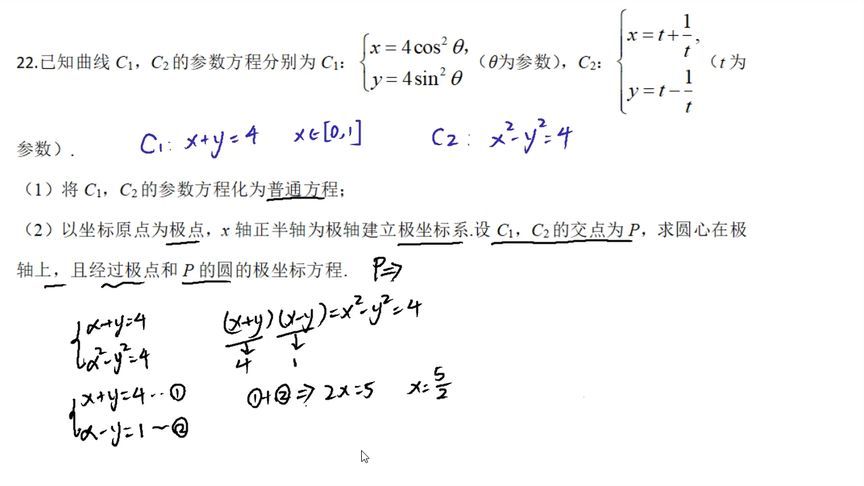 22.已知曲线 C₁，C₂的参数方程分别为 C₁：{x = 4cos² θ, y = 4sin² θ（θ为参数），C₂：{x = t + 1/t, y = t − 1/t（t 为
参数）.
C₁: x+y=4 x∈[0,1] C2: x²-y²=4
（1）将 C₁，C₂的参数方程化为普通方程；
（2）以坐标原点为极点，x 轴正半轴为极轴建立极坐标系.设 C₁，C₂的交点为 P，求圆心在极
轴上，且经过极点和 P 的圆的极坐标方程.
P⇒
{x+y=4 (x+y)(x-y)=x²-y²=4
x²-y²=4 4 1
{x+y=4··① ①+②⇒2x=5 x=5/2
x-y=1~②